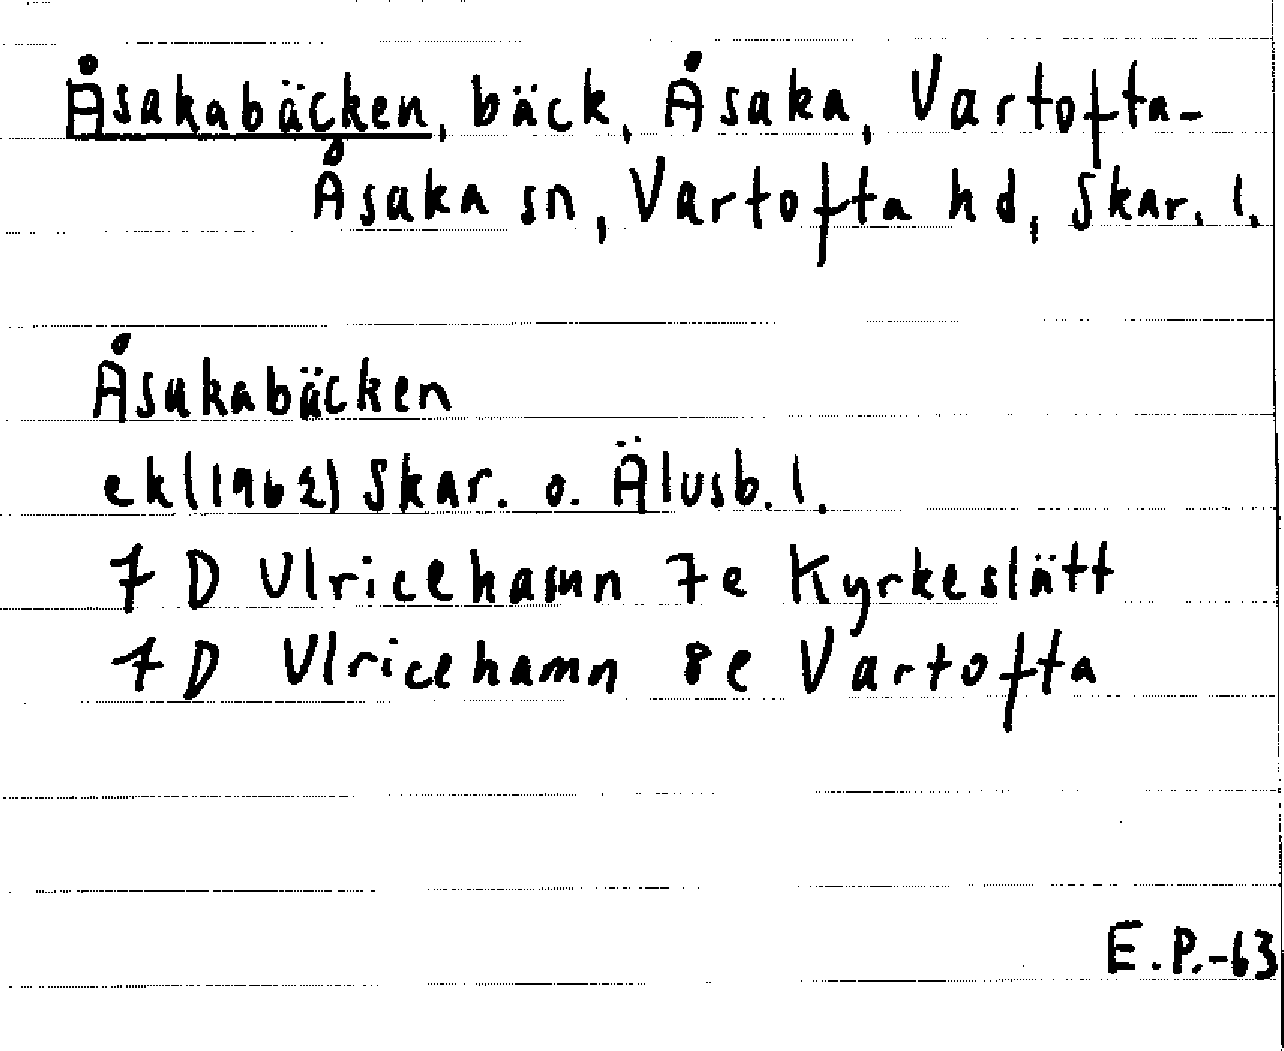 Åsakabäcken, bäck, Åsaka, Vartofta-
Åsaka sn, Vartofta hd, Skar. l.
Åsakabäcken
ek(1962) Skar. o. Älvsb. l.
7 D Ulricehamn 7e Kyrkeslätt
7 D Ulricehamn 8e Vartofta
E.P.-63